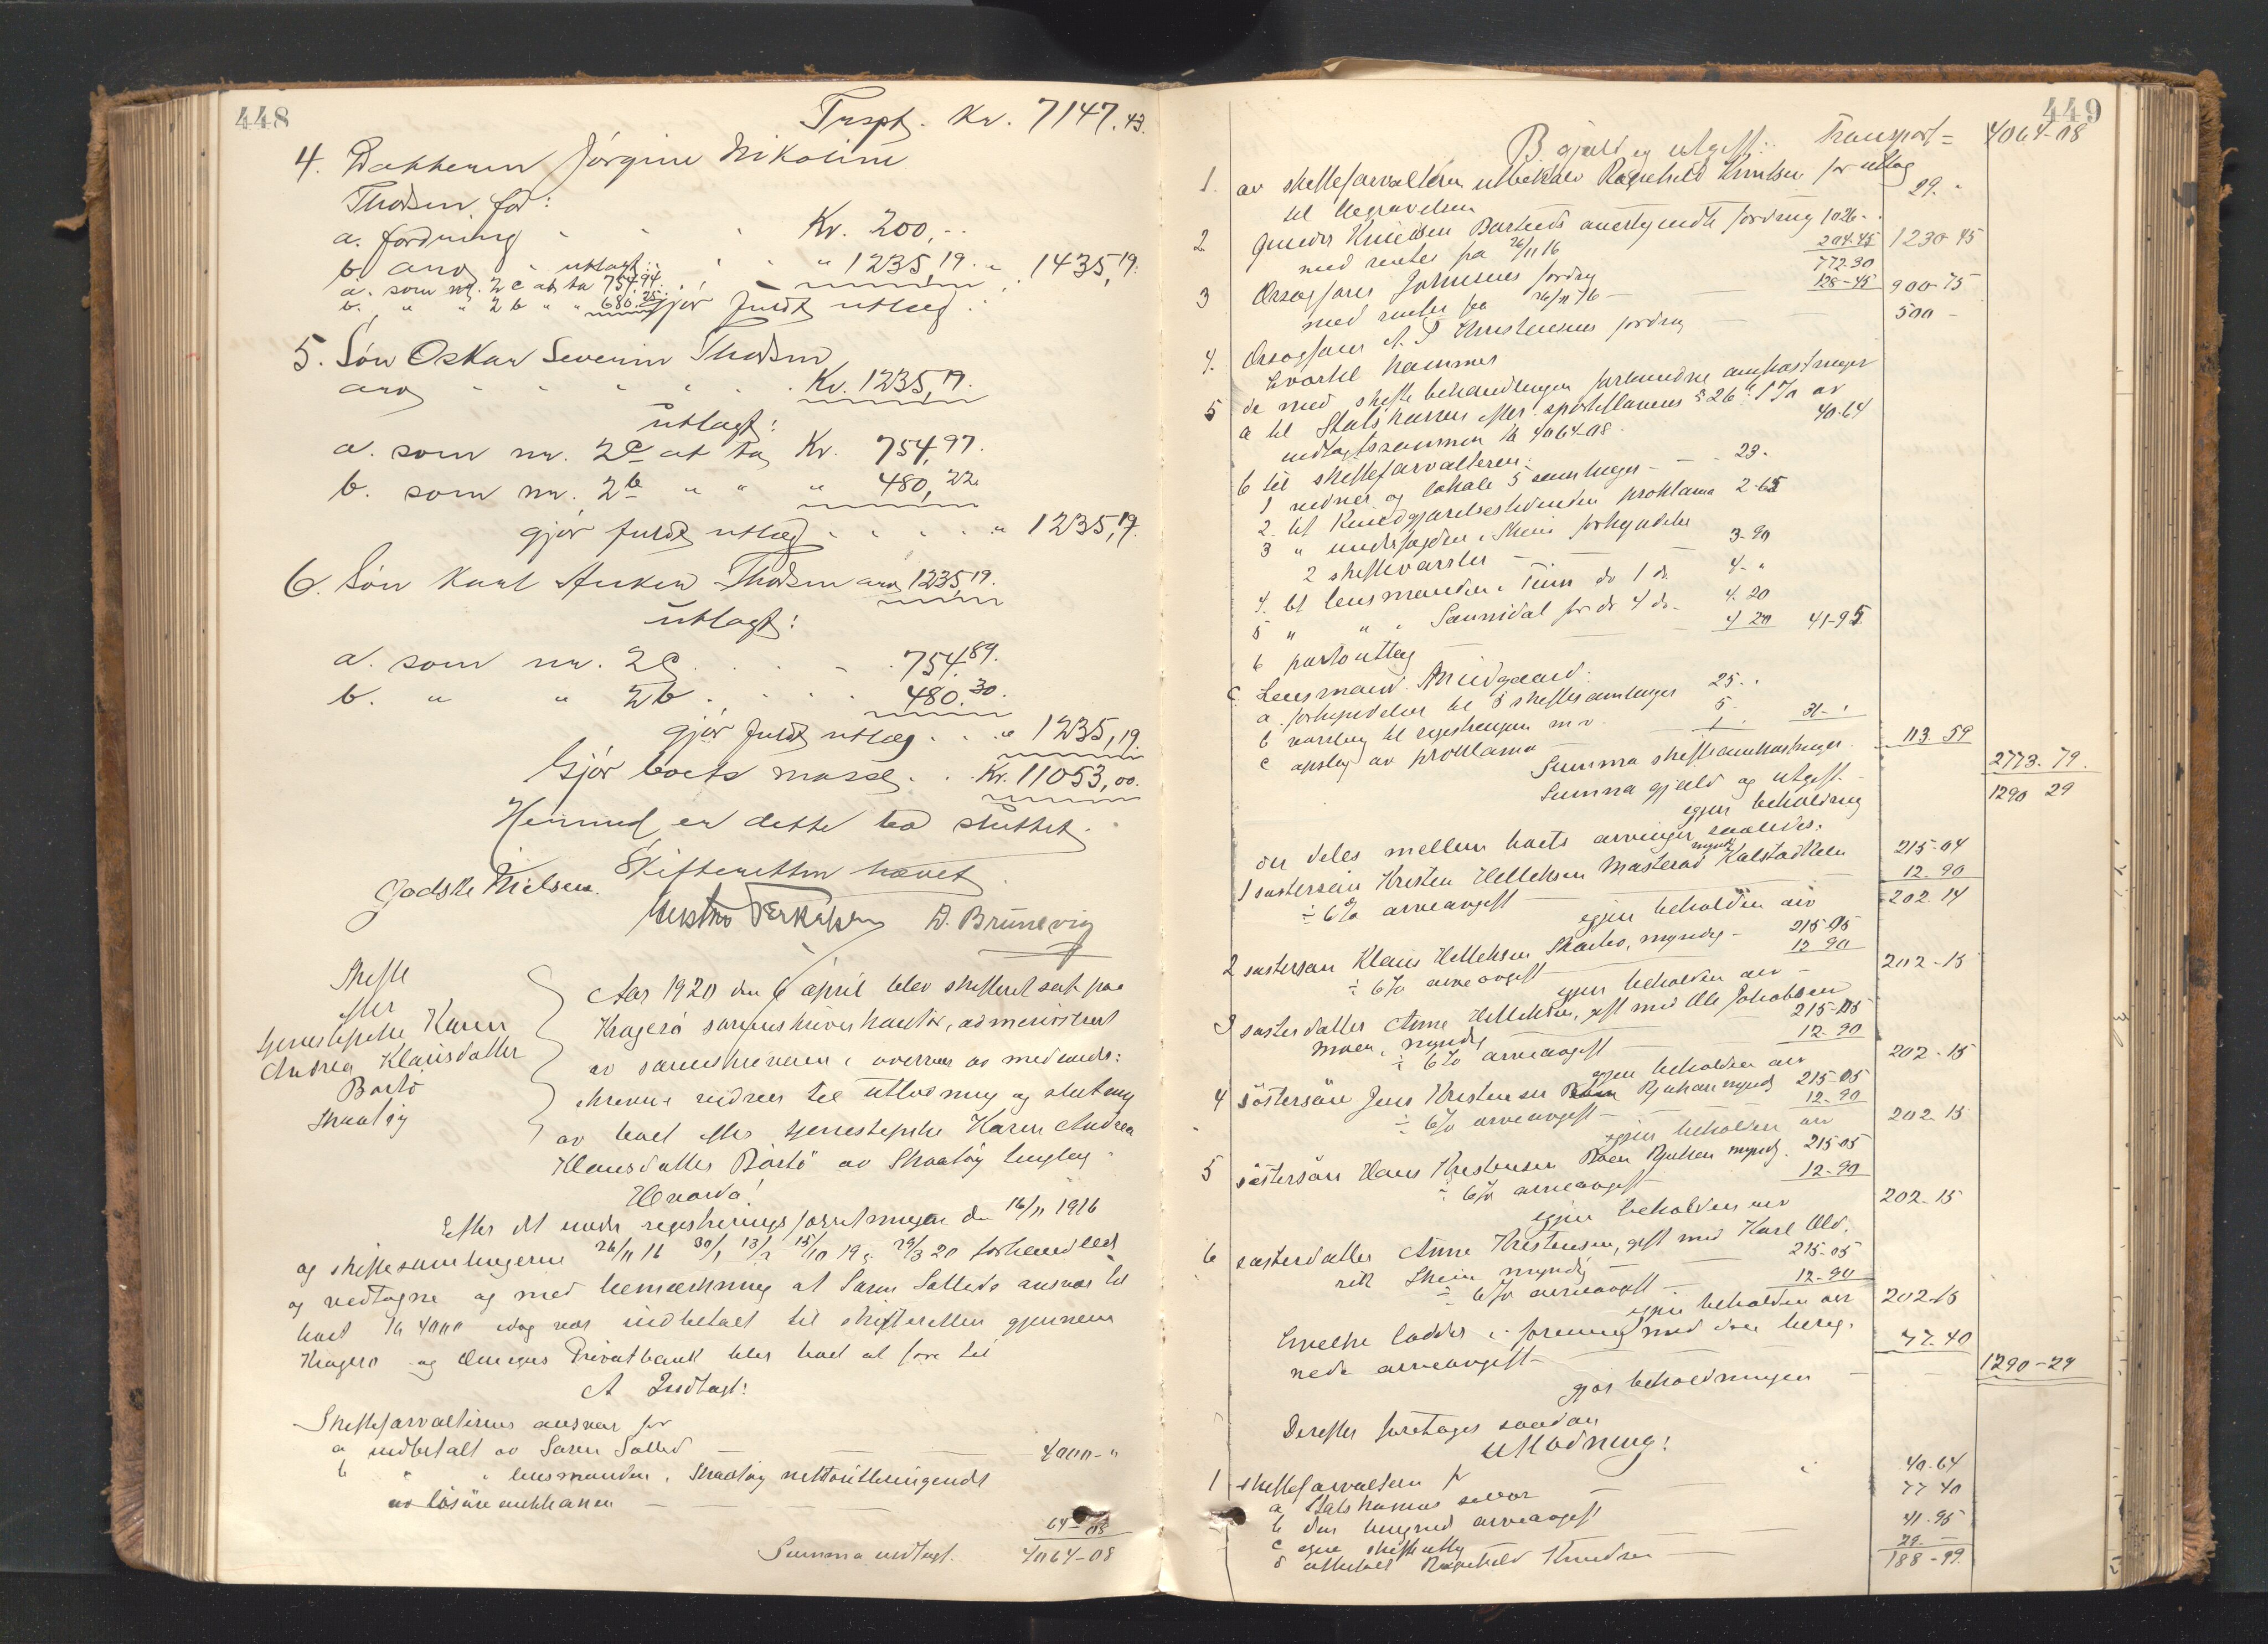 448
Trspt. Kr. 7147.43.
4. Datteren Jørgine Nikoline
Thorsen for:
a. fordring Kr. 200,-
b arv " 1235,19. " 1435,19.
utlagt:
a. som nr. 2c at ta 754,94.
b. " " 2b " " 680.25. gjør fuldt utlæg.
5. Søn Oskar Severin Thorsen
arv Kr. 1235,19.
utlagt:
a. som nr. 2c at ta Kr. 754,97.
b. som nr. 2b " " " 480,22
gjør fuldt utlæg " 1235,19.
6. Søn Karl Anker Thorsen arv 1235,19.
utlagt:
a. som nr. 2c 754.89.
b. " " 2b 480.30.
gjør fuldt utlæg " 1235,19.
Gjør boets masse Kr. 11053,00.
Hermed er dette bo sluttet.
Skifteretten hævet
Godske Nielsen. A. Brünevig
Skifte
efter
tjenestepike Karen
Andrea Klausdatter
Bartö
Skaatöy
Aar 1920 den 6 april blev skifteret sat paa
Kragerö sorenskriverkontor, administrert
av sorenskriveren i overvær av medunder-
skrevne vidner til utlodning og slutning
av boet efter tjenestepike Karen Andrea
Klausdatter Bartö av Skaatöy tinglag.
Hvorda!
Efter det under registreringsforretningen den 16/11 1916
og skiftesamlingerne 26/11 16 30/1 13/2 15/10 19 og 29/3 20 forhandlede
og vedtagne og med bemerkning at Søren Sollids ansvar til
boet kr 4000 idag var indbetalt til skifteretten gjennem
Kragerö og Omegns Privatbank blev boet at føre til
A Indtægt:
Skifteforvalterens ansvar for
a indbetalt av Søren Sollid 4000-"
b " " lensmanden i Skaatöy nettoutbringende
av løsøreauktionen
64-08
Summa indtægt. 4064-08
449
B gjæld og utgift: Transport = 4064-08
1. av skifteforvalteren utbetalt Ragnhild Knutsen for utlæg
til begravelsen 29.-
2 Gunder Knudsen Bartøs anerkjendte fordring 1026-
med renter fra 26/11 16 204.45 1230-45
3 Overlagfører Johnsens fordring 772.30
med renter fra 26/11 16 128-45 900-75
4. A. P. Kristensens fordring 500-
5 de med skiftebehandlingen forbundne omkostninger
a til Statskassen efter sportellovens § 26 1% av
indtægtssummen kr 4064-08. 40.64
b til skifteforvalteren:
1 vidner og lokale 5 samlinger 23.
2. til Kundgjørelsestidende proklama 2-65
3 " underfogden i Skien forkyndelse
2 skiftevarsler 3-90
4. til lensmanden i Tinn do 1 do 4-"
5 " " i Sannidal for do 4 do. 4.20
6 portoutlæg 4 20 41-95
c Lensmand
a. forkyndelser til 5 skiftesamlinger 25.-
b varsling til registreringen m.v. 5-
c opslag av proklama 1. 31-"
Summa skifteomkostninger 113.59
Summa gjæld og utgift 2773.79
igjen beholdning 1290 29
der deles mellem boets arvinger saaledes:
1 søstersøn Kristen Ellefsen Masterød Kalstadkilen myndig 215-04
÷ 6% arveavgift 12.90
igjen beholden arv 202.14
2 søstersøn Klaus Ellefsen Skaabo, myndig 215-05
÷ 6% arveavgift 12-90
igjen beholden arv 202-15
3 søsterdatter Anne Ellefsen, gift med Ole Jakobsen
Moen, myndig 215-05
÷ 6% arveavgift 12-90
igjen beholden arv 202-15
4 søstersøn Jens Kristensen Rjukan myndig 215-05
÷ 6% arveavgift 12-90
igjen beholden arv 202.15
5 søstersøn Hans Kristensen Rjukan myndig 215-05
÷ 6% arveavgift 12-90
igjen beholden arv 202-15
6 søsterdatter Anne Kristensen, gift med Karl Uld-
rik Skien myndig 215-05
÷ 6% arveavgift 12-90
igjen beholden arv 202-15
hvilke lodder i forening med den bereg-
nede arveavgift 77.40
gjør beholdningen 1290-29
Derefter foretages saadan
utlodning:
1 skifteforvalteren for
a Statskassens sportel 40.64
b den beregnede arveavgift 77 40
c egne skifteutlæg 41-95
d utbetalt Ragnhild Knudsen 29.-
188-99